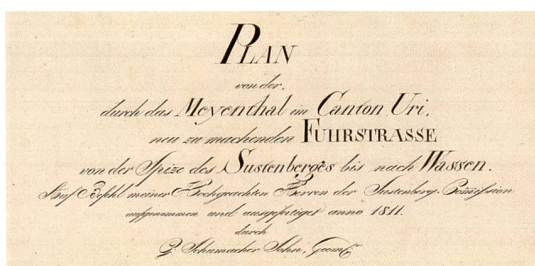 PLAN
von der,
durch das Meyenthal im Canton Uri,
neu zu machenden FUHRSTRASSE
von der Spize des Sustenberges bis nach Wassen.
Auf Befehl meiner Hochgeachten Herren der Sustenberg. Com̄ission
aufgenommen und ausgefertiget anno 1811.
durch
Schumacher Sohn, Geom